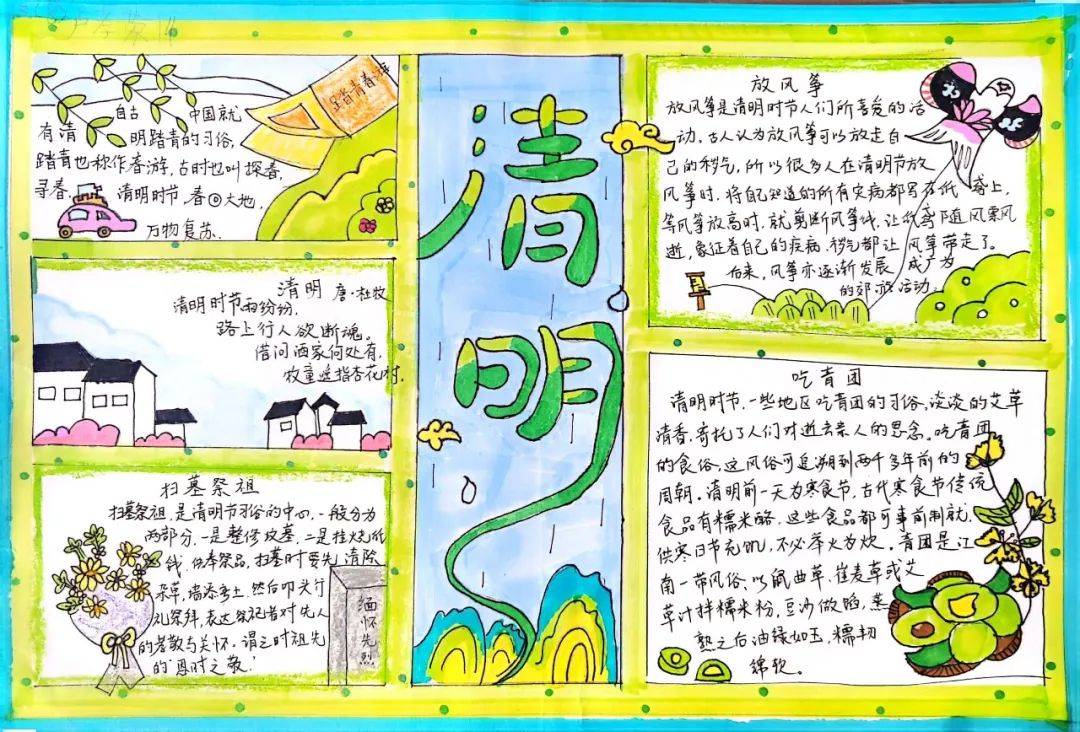 踏青春游
自古 中国就
有清 明踏青的习俗,
踏青也称作春游,古时也叫探春,
寻春. 清明时节,春回大地,
万物复苏.
清明 唐·杜牧
清明时节雨纷纷,
路上行人欲断魂。
借问酒家何处有,
牧童遥指杏花村.
扫墓祭祖
扫墓祭祖,是清明节习俗的中心,一般分为
两部分,一是整修坟墓,二是挂烧纸
钱,供奉祭品,扫墓时要先清除
杂草,培添新土,然后叩头行
礼祭拜,表达祭祀者对先人
的孝敬与关怀,谓之对祖先
的“思时之敬.”
缅怀先烈
清明
放风筝
放风筝是清明时节人们所喜爱的活
动.古人认为放风筝可以放走自
己的秽气,所以很多人在清明节放
风筝时.将自己知道的所有灾病都写在纸 鸢上,
等风筝放高时.就剪断风筝线,让纸鸢随风飘
逝,象征着自己的疾病.秽气都让 风筝带走了。
后来,风筝亦逐渐发展 成广为
的郊游活动.
吃青团
清明时节.一些地区吃青团的习俗,淡淡的艾草
清香.寄托了人们对逝去亲人的思念。吃青团
的食俗,这风俗可追溯到两千多年前的
周朝.清明前一天为寒食节,古代寒食节传统
食品有糯米酪.这些食品都可事前制就,
供寒日节充饥,不必举火为炊.青团是江
南一带风俗.以鼠曲草,雀麦草或艾
草汁拌糯米粉,豆沙做馅,蒸
熟之后油绿如玉,糯韧
绵软。